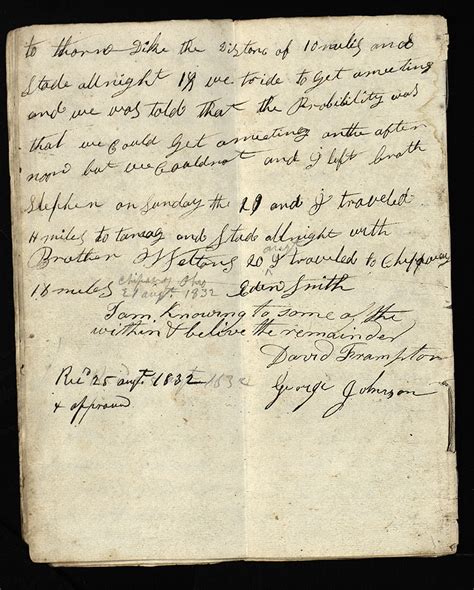 to thorn Dike the Distonc of 10 miles and
Stade all night 18 we tride to Get a meeting
and we was told that the Probibility was
that we Could Get a meeting in the after
noon but we Could not and I left broth
Stephen on Sunday the 19 and I traveled
11 miles to and Stade all night with
Brother 20 I traveled to Chippaway
18 miles Chipaway Ohio
21 augt. 1832 Eden Smith
I am Knowing to some of the
within & belive the remainder
David Frampton
Recd 25 augt. 1832 1832
George Johnson
& approved